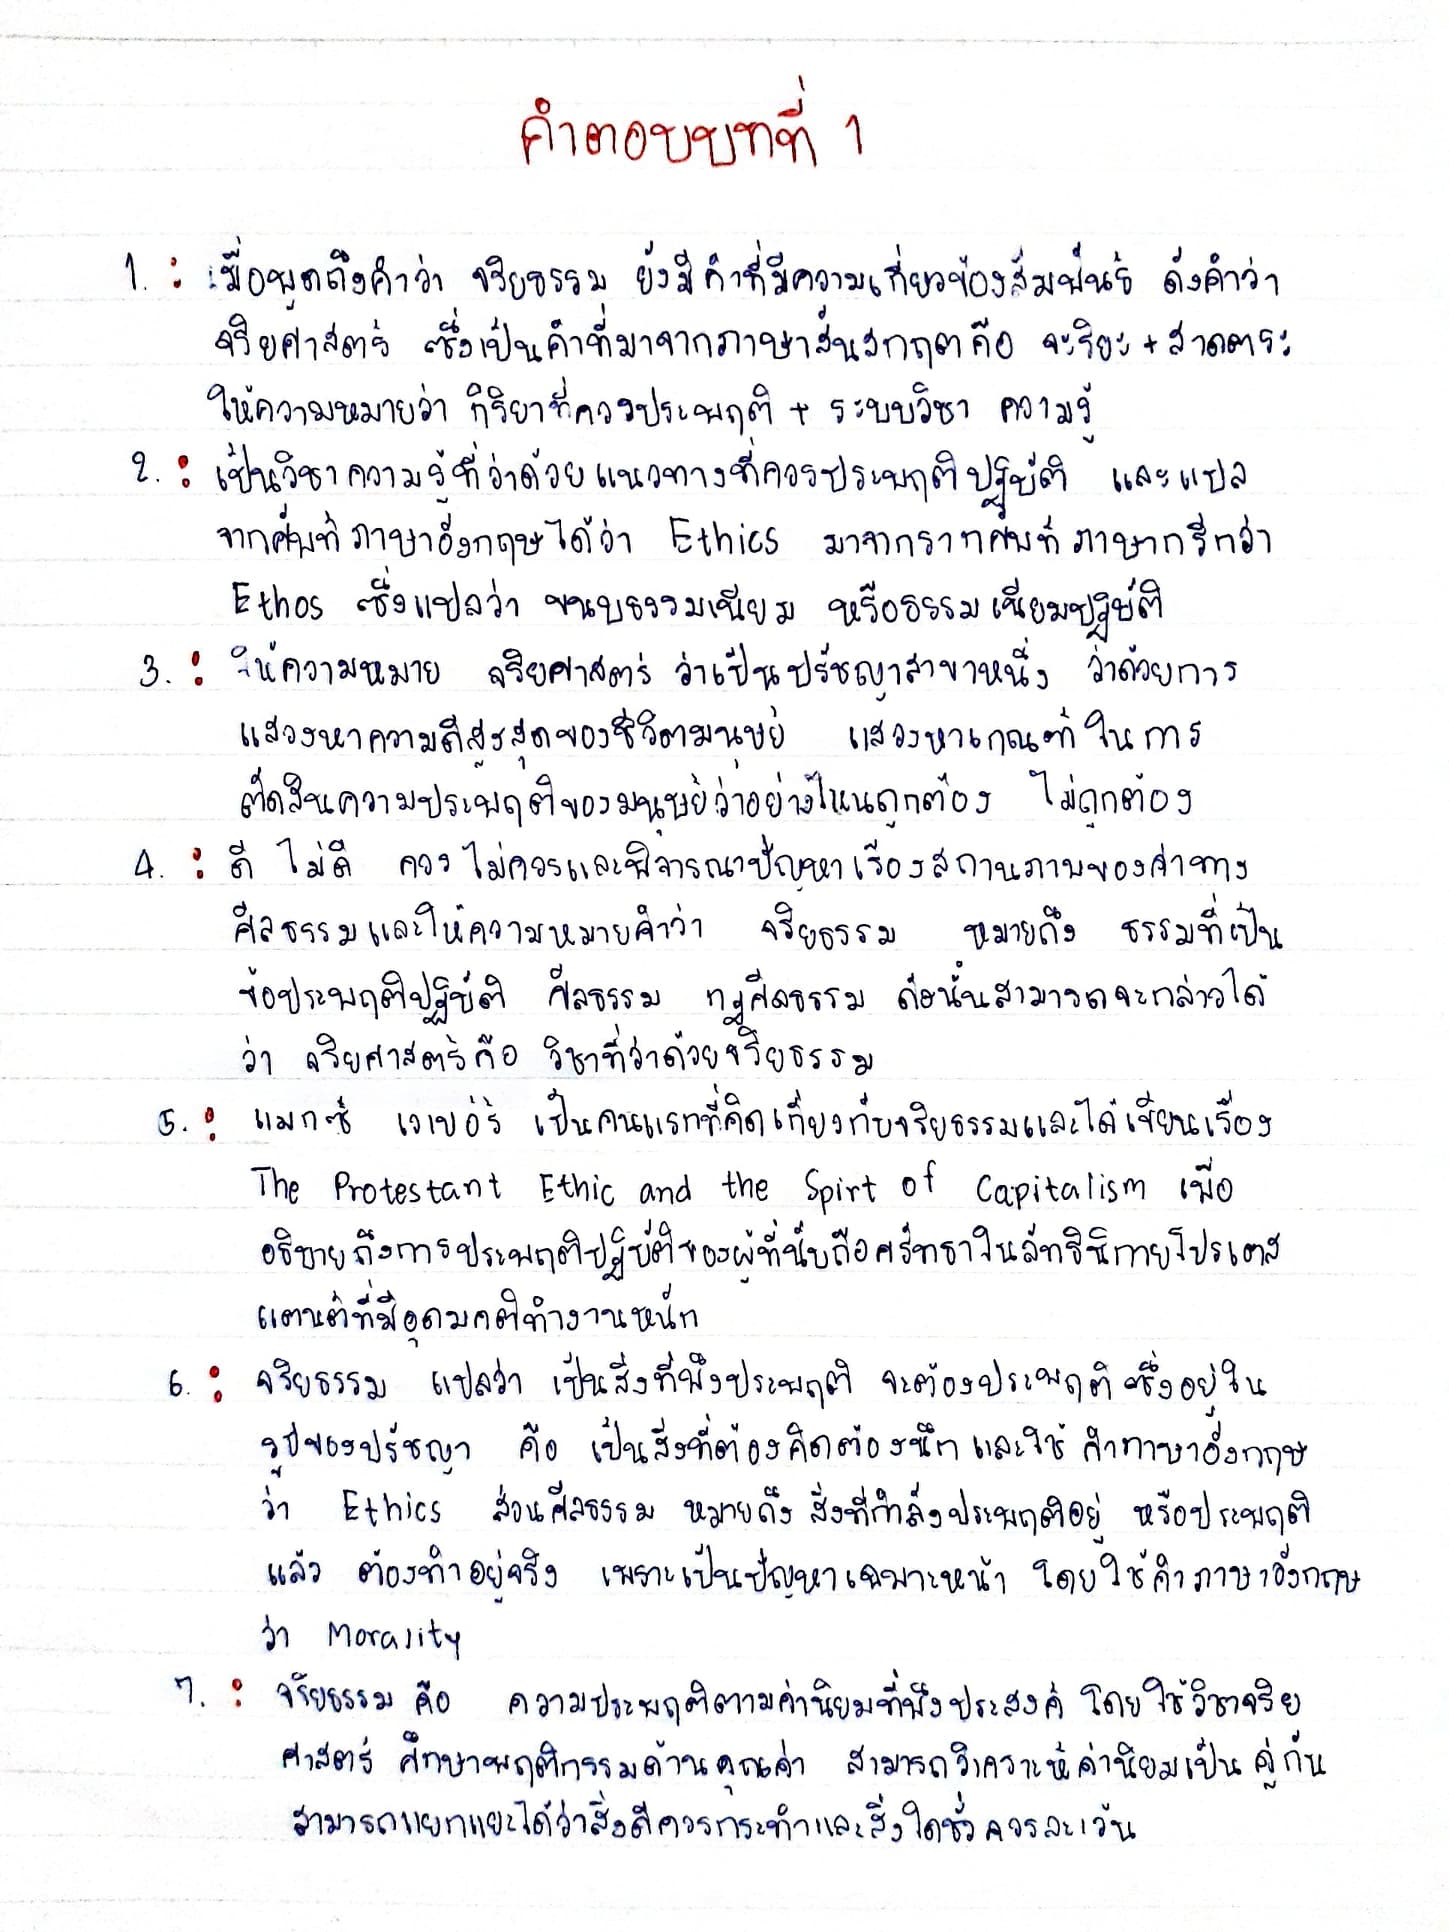 คำตอบบทที่ 1
1. : เมื่อพูดถึงคำว่า จริยธรรม ยังมีคำที่มีความเกี่ยวข้องสัมพันธ์ ดังคำว่า
จริยศาสตร์ ซึ่งเป็นคำที่มาจากภาษาสันสกฤตคือ จะริยะ + สาดตระ
ให้ความหมายว่า กิริยาที่ควรประพฤติ + ระบบวิชา ความรู้
2. : เป็นวิชาความรู้ที่ว่าด้วยแนวทางที่ควรประพฤติปฏิบัติ และแปล
จากศัพท์ภาษาอังกฤษได้ว่า Ethics มาจากรากศัพท์ภาษากรีกว่า
Ethos ซึ่งแปลว่า ขนบธรรมเนียม หรือธรรมเนียมปฏิบัติ
3. : ให้ความหมาย จริยศาสตร์ ว่าเป็นปรัชญาสาขาหนึ่ง ว่าด้วยการ
แสวงหาความดีสูงสุดของชีวิตมนุษย์ แสวงหาเกณฑ์ในการ
ตัดสินความประพฤติของมนุษย์ว่าอย่างไหนถูกต้อง ไม่ถูกต้อง
4. : ดี ไม่ดี ควร ไม่ควรและพิจารณาปัญหาเรื่องสถานภาพของค่าทาง
ศีลธรรมและให้ความหมายคำว่า จริยธรรม หมายถึง ธรรมที่เป็น
ข้อประพฤติปฏิบัติ ศีลธรรม กฎศีลธรรม ดังนั้นสามารถจะกล่าวได้
ว่า จริยศาสตร์คือ วิชาที่ว่าด้วยจริยธรรม
5. : แมกซ์ เวเบอร์ เป็นคนแรกที่คิดเกี่ยวกับจริยธรรมและได้เขียนเรื่อง
The Protestant Ethic and the Spirt of Capitalism เพื่อ
อธิบายถึงการประพฤติปฏิบัติของผู้ที่นับถือศรัทธาในลัทธินิกายโปรเตส
แตนต์ที่มีอุดมคติทำงานหนัก
6. : จริยธรรม แปลว่า เป็นสิ่งที่พึงประพฤติ จะต้องประพฤติ ซึ่งอยู่ใน
รูปของปรัชญา คือ เป็นสิ่งที่ต้องคิดต้องนึก และใช้ คำภาษาอังกฤษ
ว่า Ethics ส่วนศีลธรรม หมายถึง สิ่งที่กำลังประพฤติอยู่ หรือประพฤติ
แล้ว ต้องทำอยู่จริง เพราะเป็นปัญหาเฉพาะหน้า โดยใช้คำภาษาอังกฤษ
ว่า Morality
7. : จริยธรรม คือ ความประพฤติตามค่านิยมที่พึงประสงค์ โดยใช้วิชาจริย
ศาสตร์ ศึกษาพฤติกรรมด้านคุณค่า สามารถวิเคราะห์ค่านิยมเป็นคู่กัน
สามารถแยกแยะได้ว่าสิ่งดีควรกระทำและสิ่งใดชั่วควรละเว้น